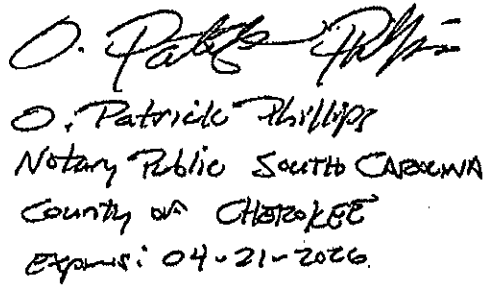 O. Patrick Phillips
O. Patrick Phillips
Notary Public SOUTH CAROLINA
County of CHEROKEE
Expires: 04-21-2026